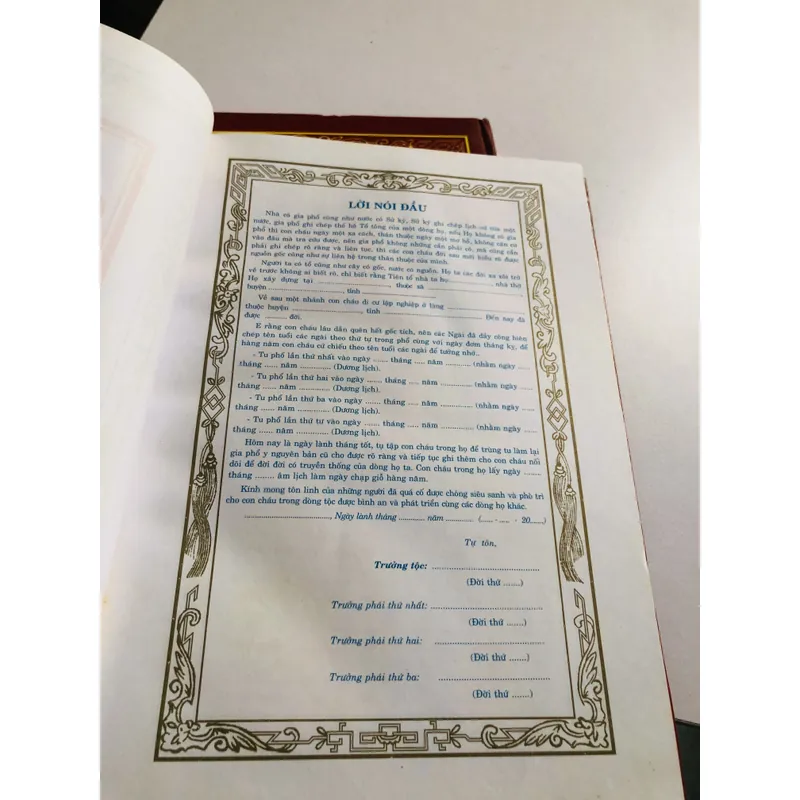 LỜI NÓI ĐẦU
Nhà có gia phổ cũng như nước có Sử ký, Sử ký ghi chép lịch sử của một
nước, gia phổ ghi chép thế hệ Tổ tông của một dòng họ, nếu Họ không có gia
phổ thì con cháu ngày một xa cách, thân thuộc ngày một mơ hồ, không căn cứ
vào đâu mà tra cứu được, nên gia phổ không những cần phải có, mà cũng cần
phải ghi chép rõ ràng và liên tục, thì các con cháu đời sau mới hiểu rõ được
nguồn gốc cũng như sự liên hệ trong thân thuộc của mình.
Người ta có tổ cũng như cây có gốc, nước có nguồn. Họ ta các đời xa xôi trở
về trước không ai biết rõ, chỉ biết rằng Tiên tổ nhà ta họ ...................., nhà thờ
Họ xây dựng tại ...................., thuộc xã ....................
huyện ...................., tỉnh ....................
Về sau một nhánh con cháu di cư lập nghiệp ở làng ....................
thuộc huyện ...................., tỉnh .................... Đến nay đã
được ......... đời.
E rằng con cháu lâu dần quên hết gốc tích, nên các Ngài đã dày công biên
chép tên tuổi các ngài theo thứ tự trong phổ cùng với ngày đơm tháng kỵ, để
hàng năm con cháu cứ chiếu theo tên tuổi các ngài để tưởng nhớ..
- Tu phổ lần thứ nhất vào ngày ....... tháng ..... năm ........... (nhằm ngày .....
tháng ...... năm .............. (Dương lịch).
- Tu phổ lần thứ hai vào ngày ....... tháng ..... năm ........... (nhằm ngày ......
tháng ...... năm .............. (Dương lịch).
- Tu phổ lần thứ ba vào ngày ....... tháng ..... năm ........... (nhằm ngày ......
tháng ...... năm .............. (Dương lịch).
- Tu phổ lần thứ tư vào ngày ....... tháng ..... năm ........... (nhằm ngày ......
tháng ...... năm .............. (Dương lịch).
Hôm nay là ngày lành tháng tốt, tụ tập con cháu trong họ để trùng tu làm lại
gia phổ y nguyên bản cũ cho được rõ ràng và tiếp tục ghi thêm cho con cháu nối
dõi để đời đời có truyền thống của dòng họ ta. Con cháu trong họ lấy ngày ......
tháng ....... âm lịch làm ngày chạp giỗ hàng năm.
Kính mong tôn linh của những người đã quá cố được chóng siêu sanh và phù trì
cho con cháu trong dòng tộc được bình an và phát triển cùng các dòng họ khác.
............................., Ngày lành tháng ............ năm ............ (...... - ..... - 20......)
Tự tôn,
Trưởng tộc: ....................................
(Đời thứ .......)
Trưởng phái thứ nhất: ....................................
(Đời thứ .......)
Trưởng phái thứ hai: ....................................
(Đời thứ .......)
Trưởng phái thứ ba: ....................................
(Đời thứ .......)